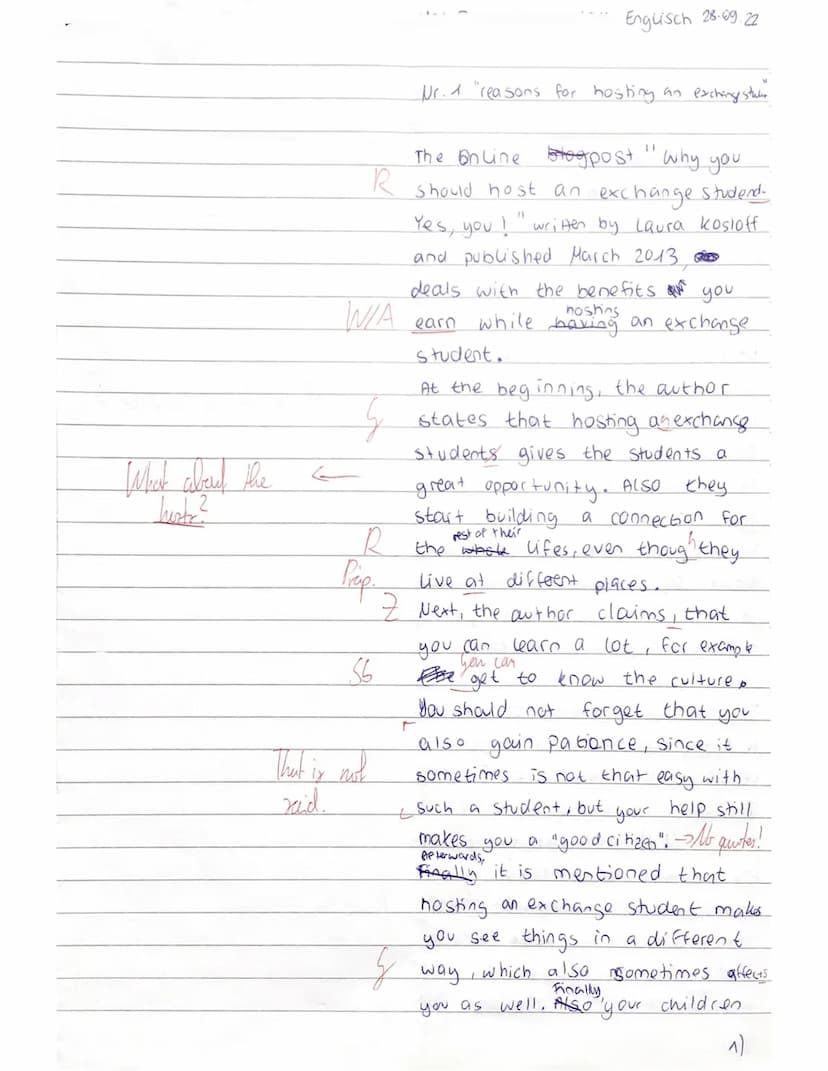 Englisch 28.09.22
Nr. 1 "reasons for hosting an exchange
The Online blogpost "Why you
R should host an exchange studend-
Yes, you!" written by Laura Kosloff
and published March 2013,
deals with the benefits you
hosting
W/A earn while having an exchange
student.
At the beginning, the author
states that hosting an exchange
students gives the students a
What about the ← great opportunity. Also they
hosts? start building a connection for
rest of their
R the whole lifes, even though they
Präp. live at different places.
Z Next, the author claims, that
you can learn a lot, for example
you can
Sb get to know the culture.
You should not forget that you
also gain patience, since it
That is not sometimes is not that easy with
said. such a student, but your help still
makes you a "good citizen". → No quotes!
Afterwards,
Finally it is mentioned that
hosting an exchange student makes
you see things in a different
way, which also sometimes affects
Finally,
you as well. Also your children
1)